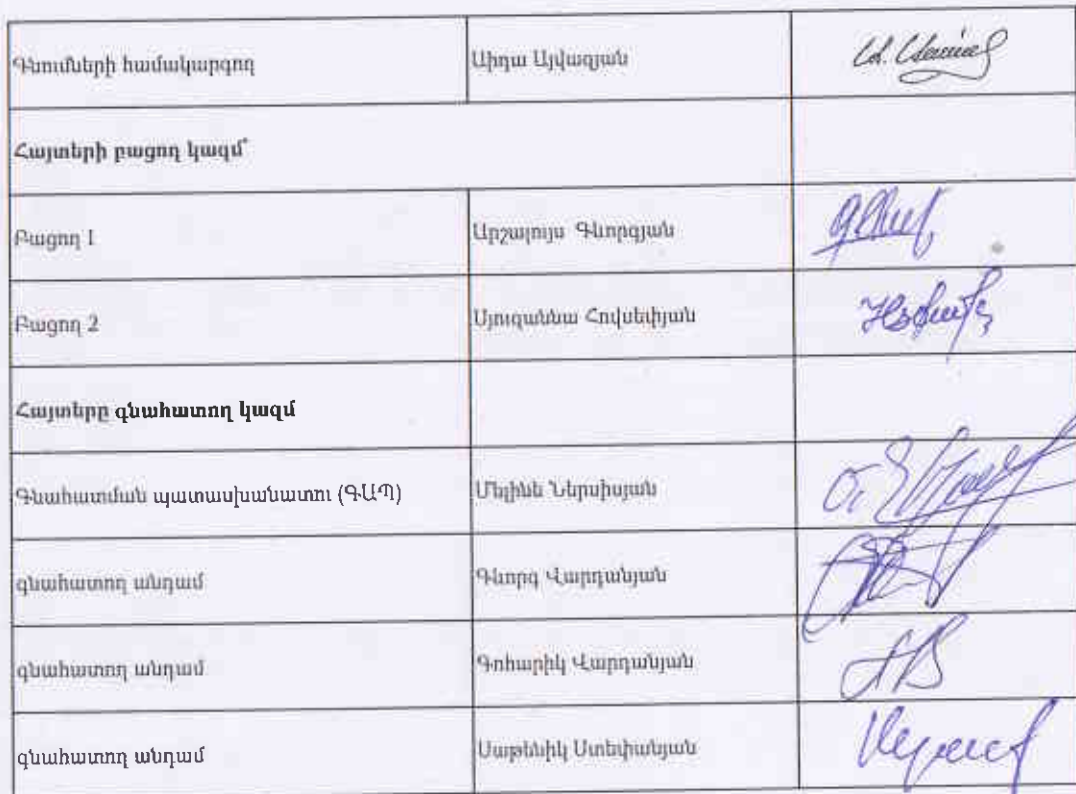 Գնումների համակարգող Աիդա Այվազյան
Հայտերի բացող կազմ՝
Բացող 1 Արշալույս Գևորգյան
Բացող 2 Սյուզաննա Հովսեփյան
Հայտերը գնահատող կազմ
Գնահատման պատասխանատու (ԳԱՊ) Մելինե Ներսիսյան
գնահատող անդամ Գևորգ Վարդանյան
գնահատող անդամ Գոհարիկ Վարդանյան
գնահատող անդամ Սաթենիկ Ստեփանյան